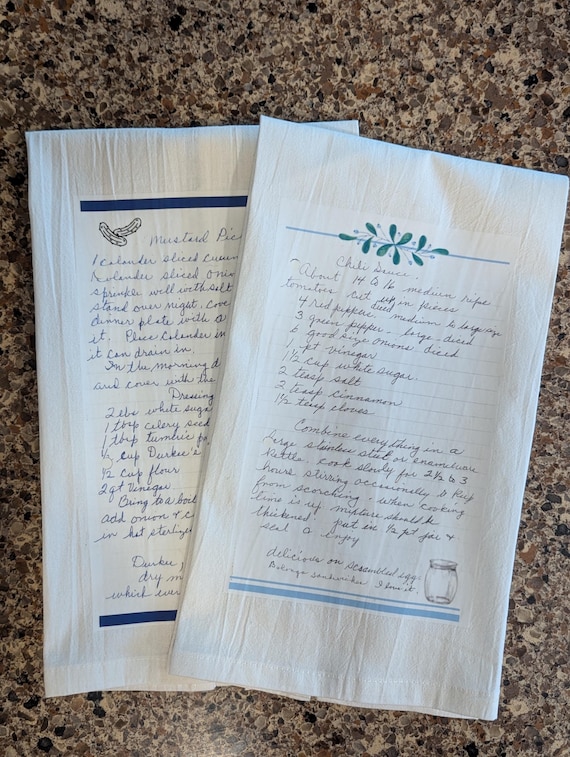 Mustard Pic
1 Colander sliced cucum
1 Colander sliced onio
sprinkle well with salt
stand over night. Cove
dinner plate with a
it. Place Colander in
it can drain in.
In the morning d
and cover with the
Dressing
2 lbs white suga
1 tbsp celery seed
1 tbsp tumeric po
cup Durkee's
1/2 cup flour
2 qt vinegar
Bring to a boil
add onion & c
in hot sterlize
Durkee
dry m
which ever
Chili Sauce.
About 14 to 16 medium ripe
tomatoes cut up in pieces
4 red peppers. diced medium to large size
3 green pepper - large - diced
6 good size onions diced
1 pt vinegar
1 1/2 cup white sugar.
2 teasp salt
2 teasp cinnamon
1 1/2 teasp cloves
Combine everything in a
large stainless steel or enamelware
Kettle. cook slowly for 2 1/2 to 3
hours stirring occasionally to keep
from scorching. when cooking
time is up mixture should be
thickened. put in 1/2 pt jar &
seal & enjoy
delicious on scrambled egg.
sandwiches I love it.